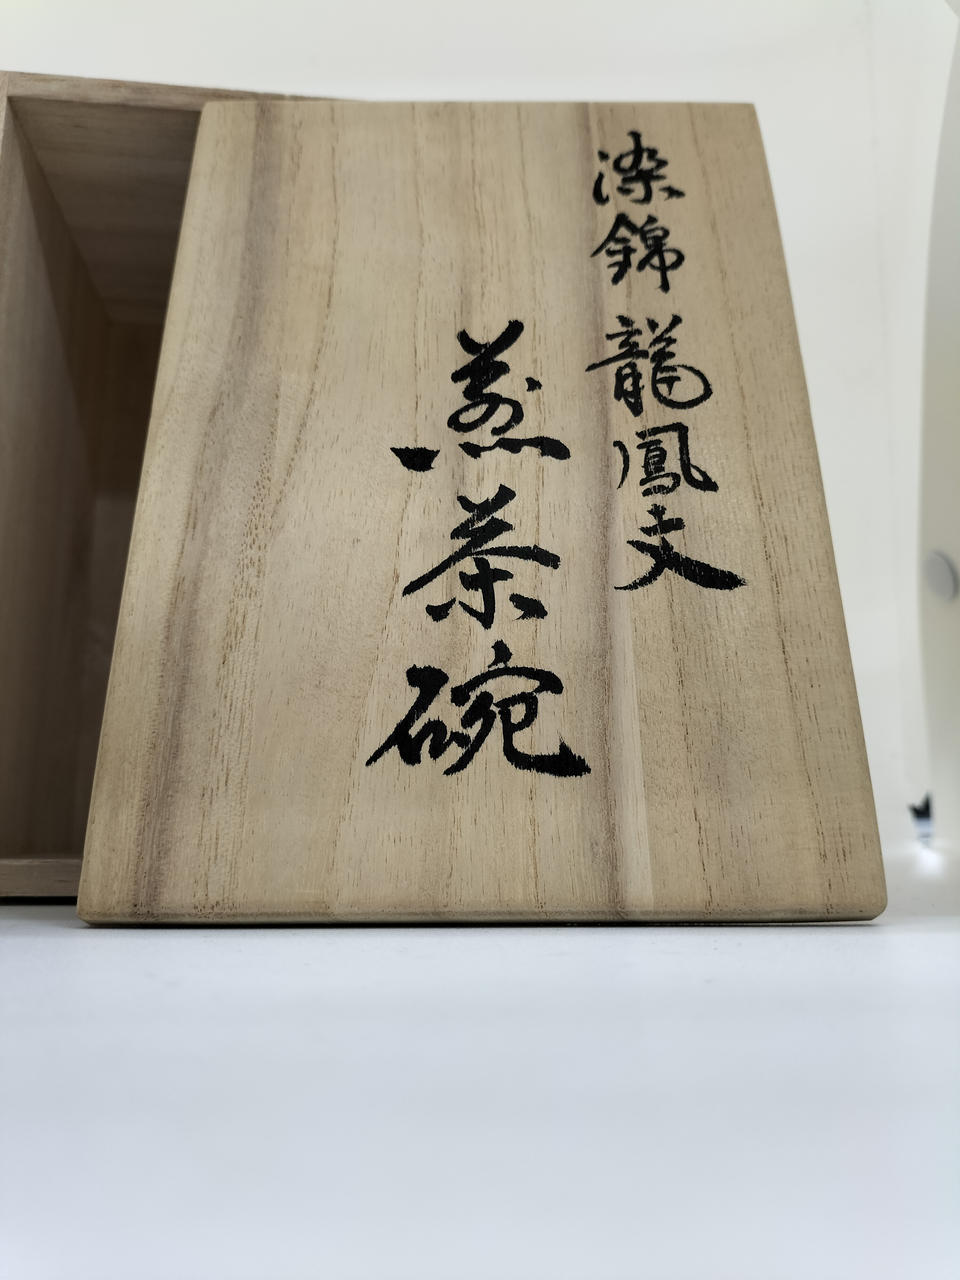 染錦龍鳳文
煎茶碗